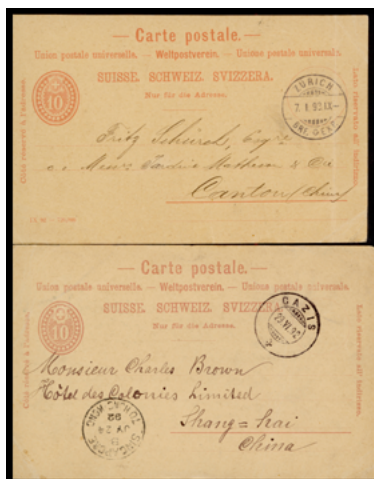 — Carte postale. —
Union postale universelle. — Weltpostverein. — Unione postale universale.
SUISSE. SCHWEIZ. SVIZZERA.
Nur für die Adresse.
Côté réservé à l'adresse.
10
Lato riservato all' indirizzo.
ZURICH
BRF. EXP.
Fritz
Messrs Jardine Matheson & Co
Canton (China)
— Carte postale. —
Union postale universelle. — Weltpostverein. — Unione postale universale.
SUISSE. SCHWEIZ. SVIZZERA.
Nur für die Adresse.
Côté réservé à l'adresse.
10
Lato riservato all' indirizzo.
CAZIS
Monsieur Charles Brown
Hôtel des Colonies Limited
Shang=hai
China
SINGAPORE
JY 24
92